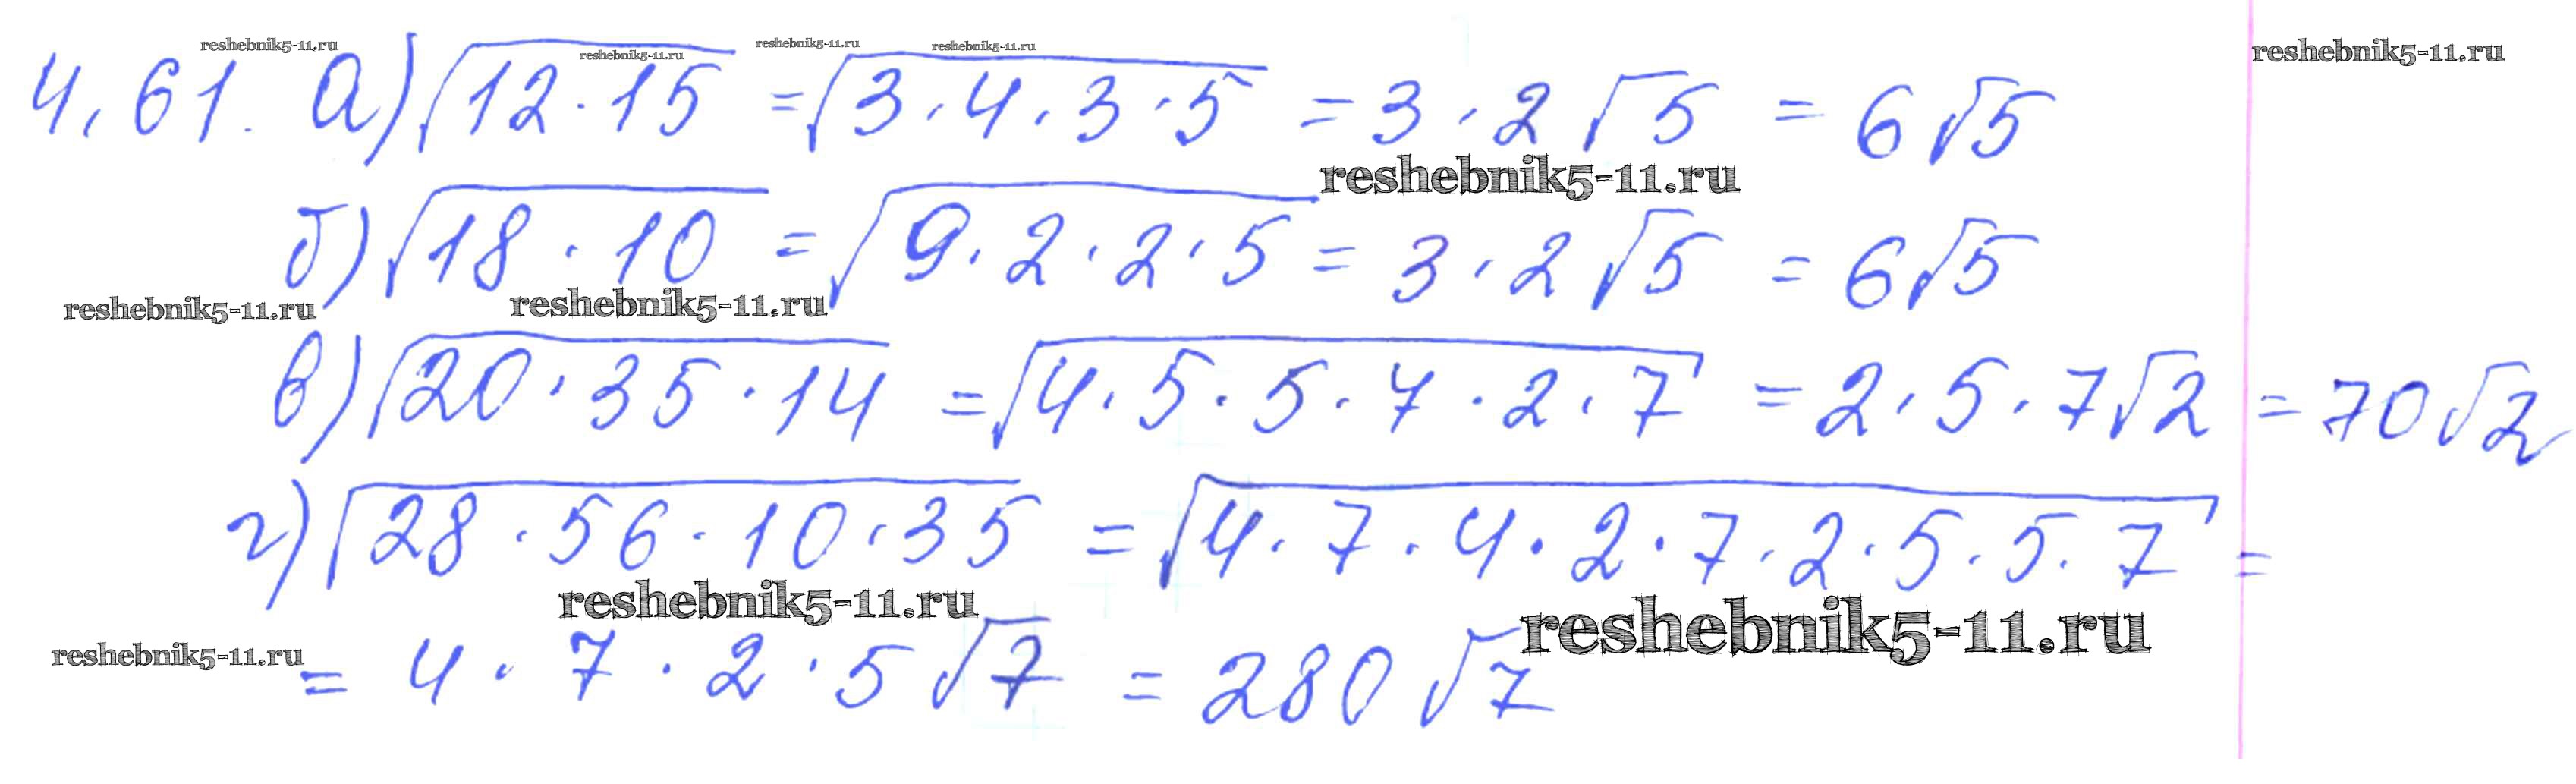 reshebnik5-11.ru reshebnik5-11.ru reshebnik5-11.ru reshebnik5-11.ru reshebnik5-11.ru
4.61. а) √12·15 = √3·4·3·5 = 3·2√5 = 6√5
reshebnik5-11.ru
б) √18·10 = √9·2·2·5 = 3·2√5 = 6√5
reshebnik5-11.ru reshebnik5-11.ru
в) √20·35·14 = √4·5·5·7·2·7 = 2·5·7√2 = 70√2
г) √28·56·10·35 = √4·7·4·2·7·2·5·5·7 =
reshebnik5-11.ru reshebnik5-11.ru
reshebnik5-11.ru
= 4·7·2·5√7 = 280√7